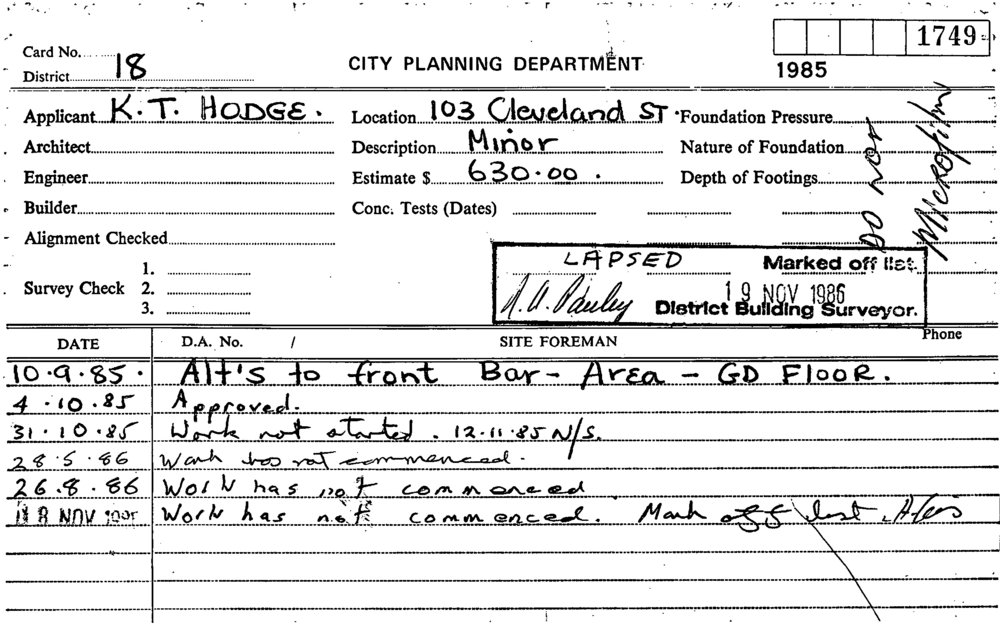 Card No.
1749
District 18
CITY PLANNING DEPARTMENT
1985
Applicant K.T. HODGE. Location 103 Cleveland ST Foundation Pressure
Architect Description Minor Nature of Foundation
Engineer Estimate $ 630.00. Depth of Footings
Builder Conc. Tests (Dates)
DO NOT
Microfilm
Alignment Checked
LAPSED Marked off list.
Survey Check 1.
2.
3.
19 NOV 1986
District Building Surveyor.
DATE D.A. No. / SITE FOREMAN Phone
10.9.85. Alt's to front Bar - Area - GD FlooR.
4.10.85 Approved.
31.10.85 Work not started. 12.11.85 N/S.
28.5.86 Work has not commenced.
26.8.86 Work has not commenced
18 NOV Work has not commenced. Mark off list